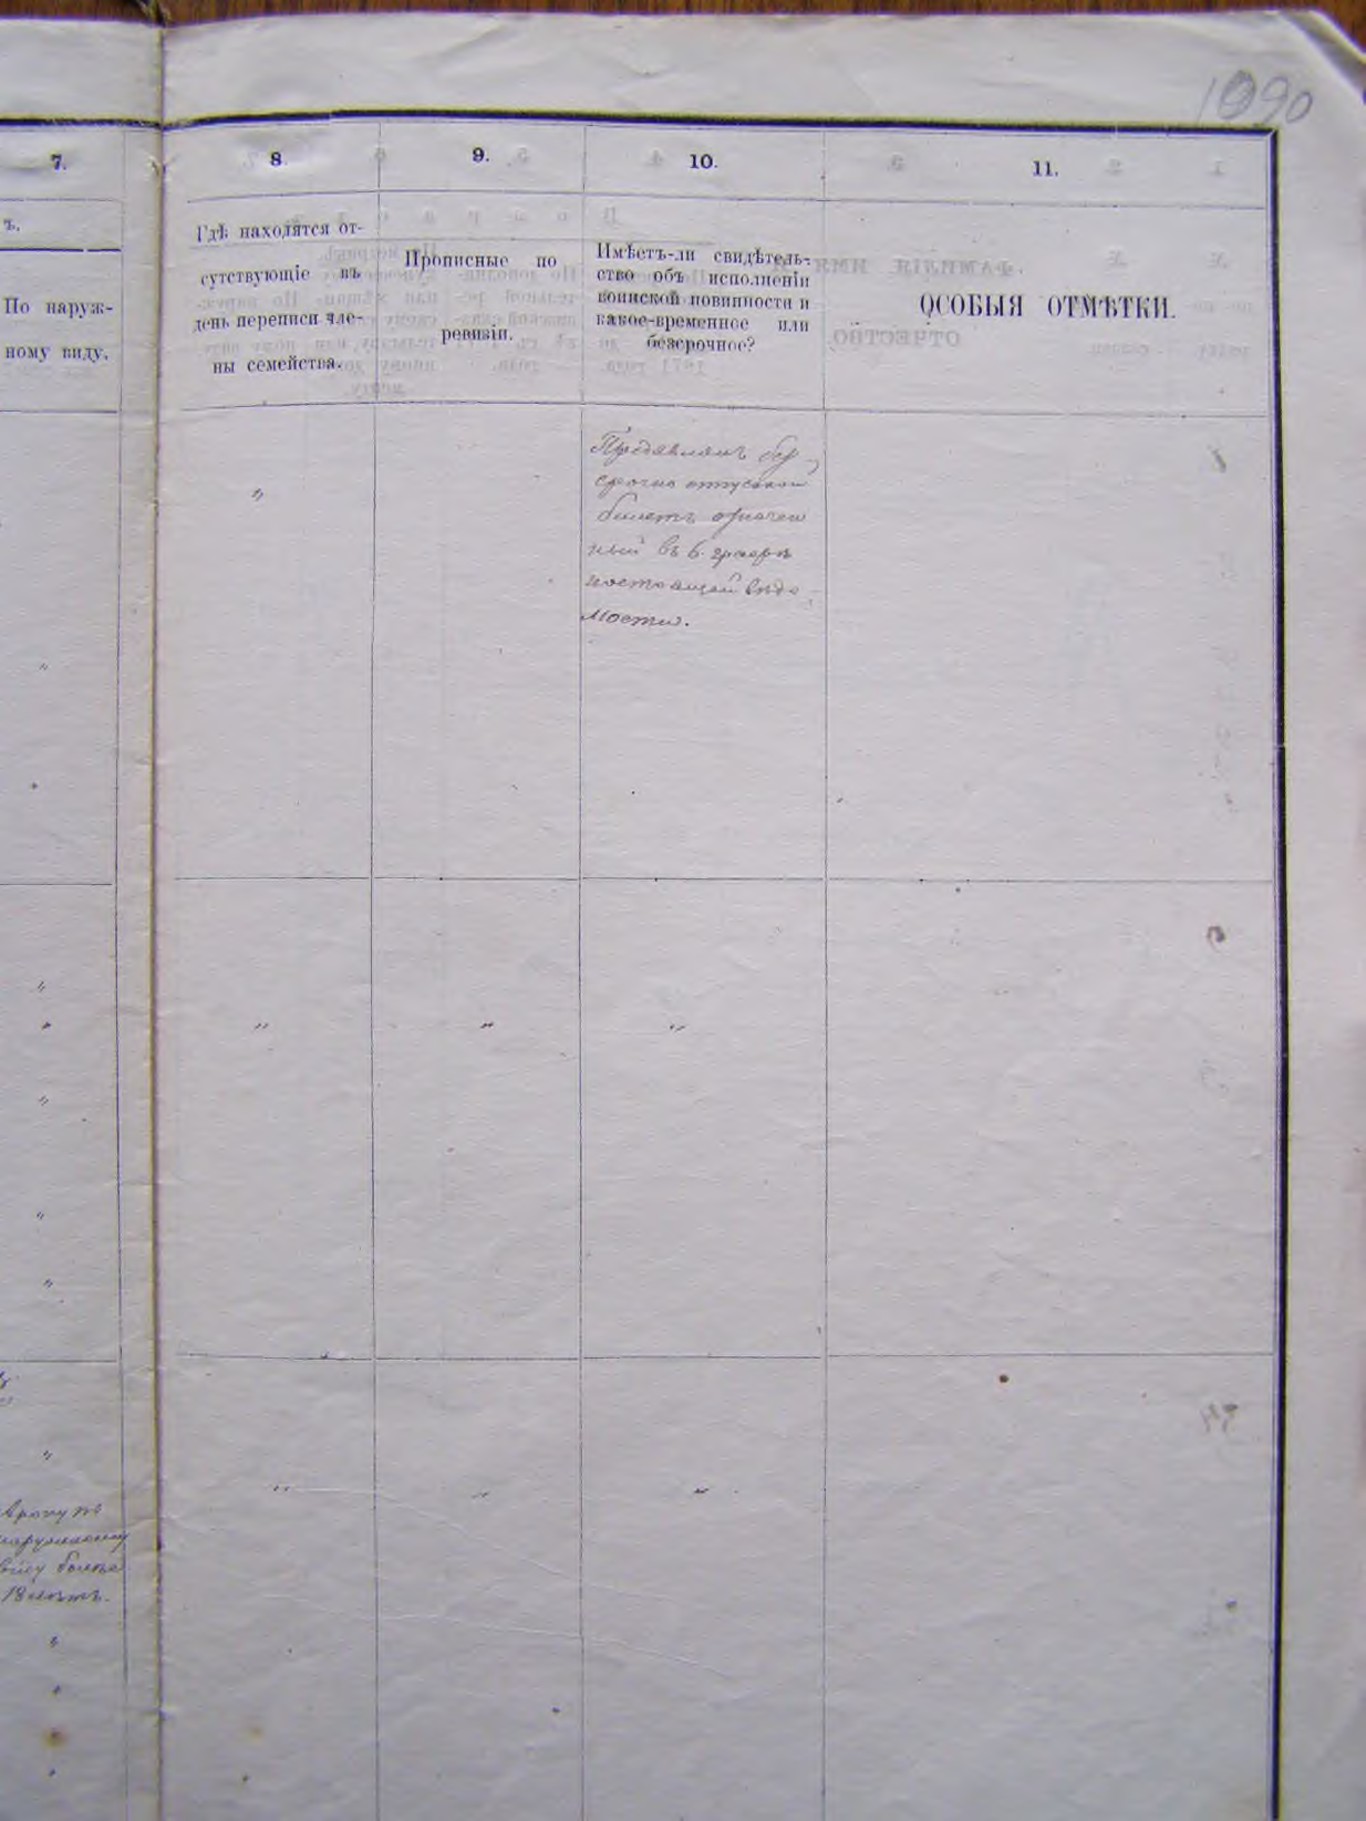 7.
8
9.
10.
11.
ъ.
По наруж-
ному виду.
Гдѣ находятся от-
сутствующіе въ
день переписи чле-
ны семейства.
Прописные по
ревизіи.
Имѣетъ-ли свидѣтель-
ство объ исполненіи
воинской повинности и
какое-временное или
безсрочное?
ОСОБЫЯ ОТМѢТКИ.
Предявилъ без
срочно отпускной
билетъ означен
ный въ 6 графѣ
настоящей вѣдо
мости.
"
"
"
"
"
"
"
"
"
"
"
"
"
наружному
виду болѣе
18 лѣтъ.
"